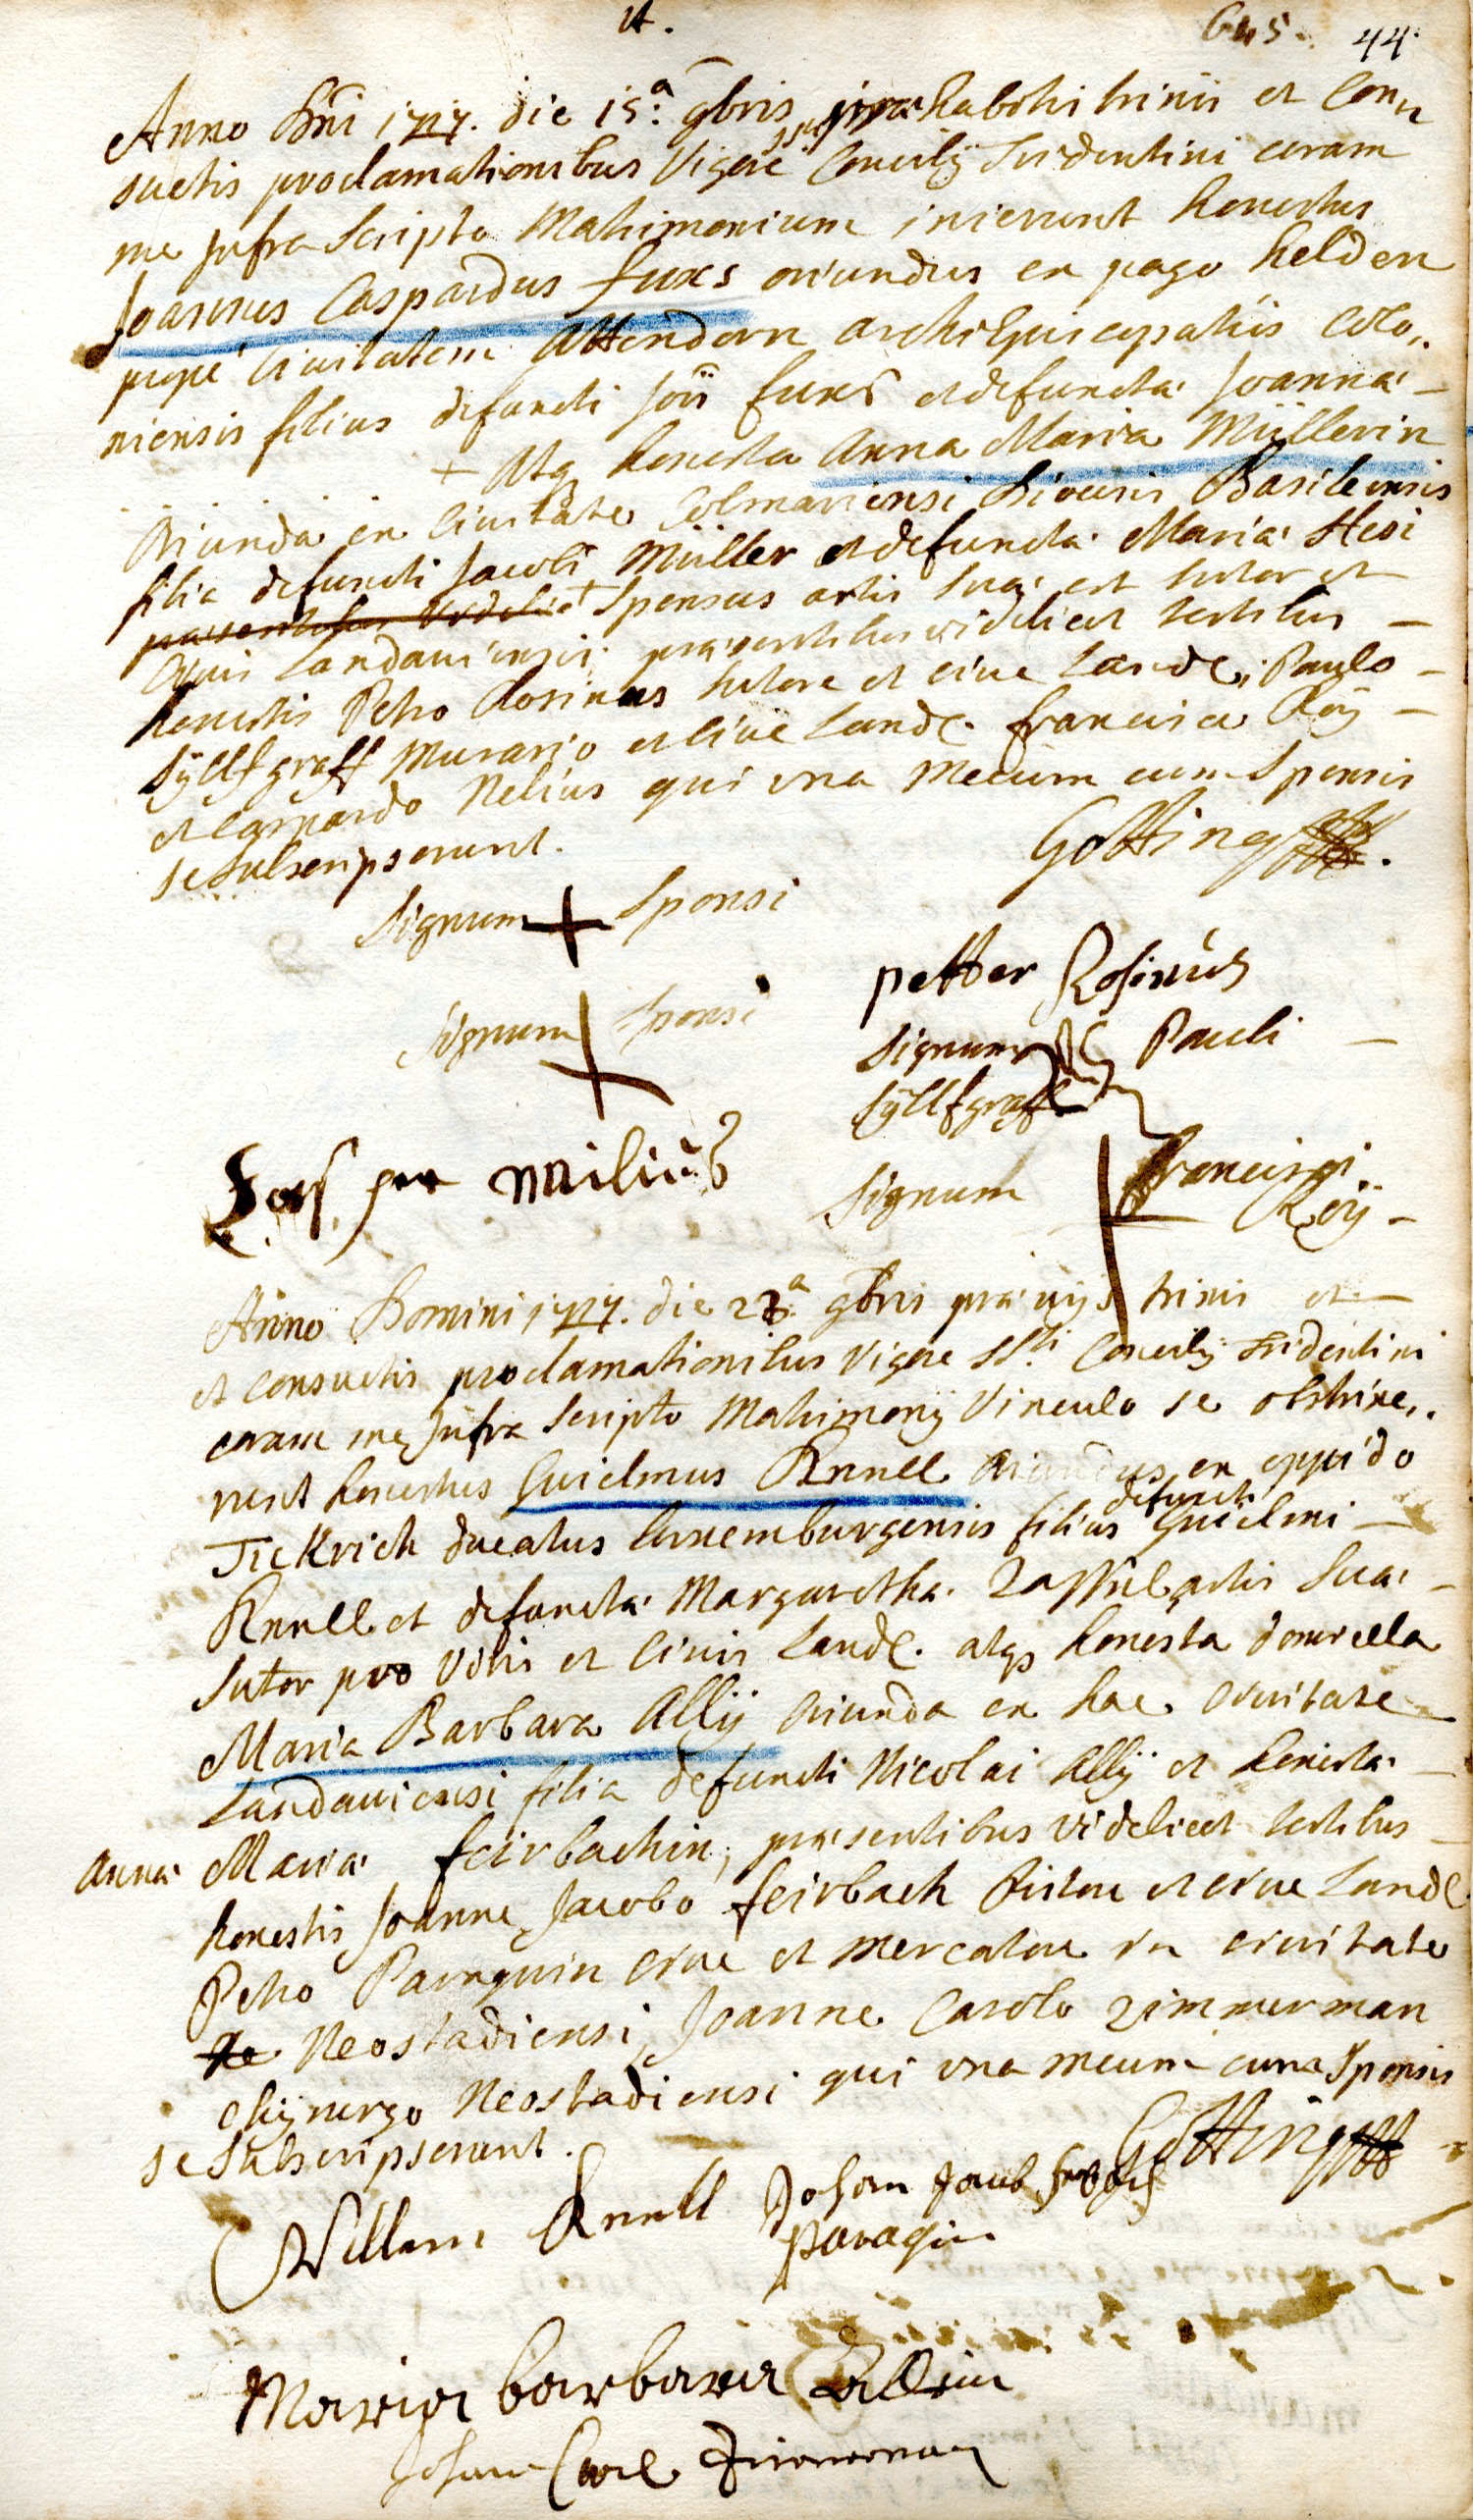 645. 44.
Anno Dni 1727. die 15.a 9bris habitis trinis et con„
suetis proclamationibus vigore Concilÿ Tridentini coram
me Infra Scripto Matrimonium inierunt honestus
Joannes Caspardus fuxs oriundus ex pago helden
prope Civitatem Attendorn archiEpiscopatûs colo„
niensis filius defuncti Jois fuxs et defunctæ Joannæ
+ Atq honesta Anna Maria Müllerin
Oriunda ex Civitate Colmariensi Diœcesis Basileensis
filia defuncti Jacobi Müller et defunctæ Mariæ
+ Sponsus artis suæ est sutor et
Civis Landaviensis; præsentibus videlicet testibus
honestis Petro Rosinus sutore et cive Landc„; Paulo
Syllfgraff Murario et Cive Landc. francisco Roÿ
et Caspardo Nelius qui una mecum cum Sponsis
se subscripserunt.
Gotting
Signum + Sponsi
petter Rosinus
Signum + Sponsæ
Signum Pauli
Syllfgraff
milius
Signum Francisci
Roÿ
Anno Domini 1727. die 23.a 9bris prævijs trinis et
et consuetis proclamationibus vigore SSti Concilÿ Tridentini
coram me Infra Scripto Matrimonÿ Vinculo se obstrinx„
erunt honestus Guielmus Knull oriundus ex oppido
defuncti
Tickrich ducatus luxemburgensis filius Guielmi
Knull et defunctæ Margarethæ artis suæ
Sutor pro Vilis et Civis Landc. atq honesta domicella
Maria Barbara Allÿ oriunda ex hac civitate
Landaviensi filia defuncti Nicolai Allÿ et honestæ
Annæ Mariæ feirbachin, præsentibus videlicet testibus
honestis Joanne Jacobo feirbach et cive Landc
Petro Paraquin cive et mercatore in civitate
Neostadiensi, Joanne Carolo Zimmerman
chÿrurgo Neostadiensi qui una mecum cum Sponsis
se subscripserunt.
Gotting
Willem Knull Johan Jacob
Paraqin
Maria barbara Allin
Johan Carl Zimmerman